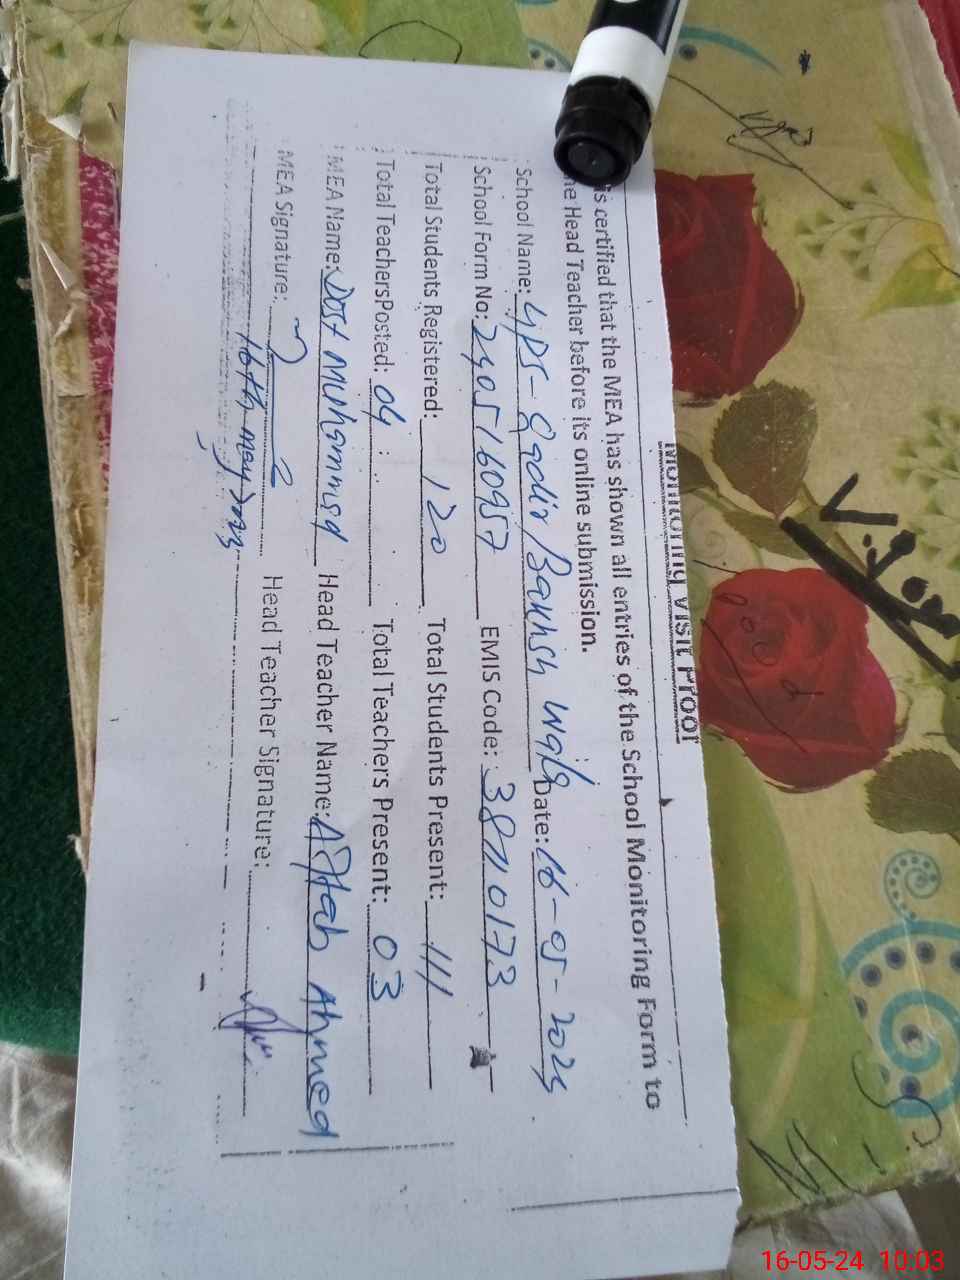 Monitoring Visit Proof
is certified that the MEA has shown all entries of the School Monitoring Form to
he Head Teacher before its online submission.
School Name: GPS- Qadir Bakhsh Wala Date: 16-05-2024
School Form No: 2405160957 EMIS Code: 38710173
Total Students Registered: 120 Total Students Present: 111
Total TeachersPosted: 04 Total Teachers Present: 03
MEA Name: Dost Muhammad Head Teacher Name: Aftab Ahmed
MEA Signature: Head Teacher Signature:
16th may, 2024
V. Good
Good
16-05-24 10:03